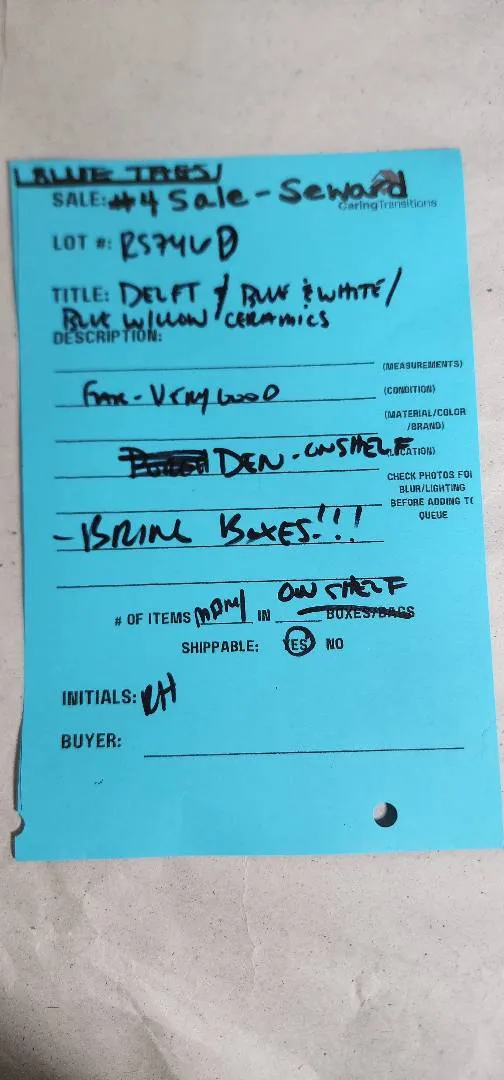 BLUE TAGS/
SALE: #4 Sale - Seward
CaringTransitions
LOT #:
TITLE: DELFT / BLUE & WHITE /
BLUE WILLOW CERAMICS
DESCRIPTION:
(MEASUREMENTS)
FAIR - VERY GOOD (CONDITION)
(MATERIAL/COLOR
/BRAND)
DEN - ON SHELF (LOCATION)
CHECK PHOTOS FOR
BLUR/LIGHTING
BEFORE ADDING TO
QUEUE
- BRING BOXES!!!
ON SHELF
# OF ITEMS MANY IN BOXES/BAGS
SHIPPABLE: YES NO
INITIALS: RH
BUYER: